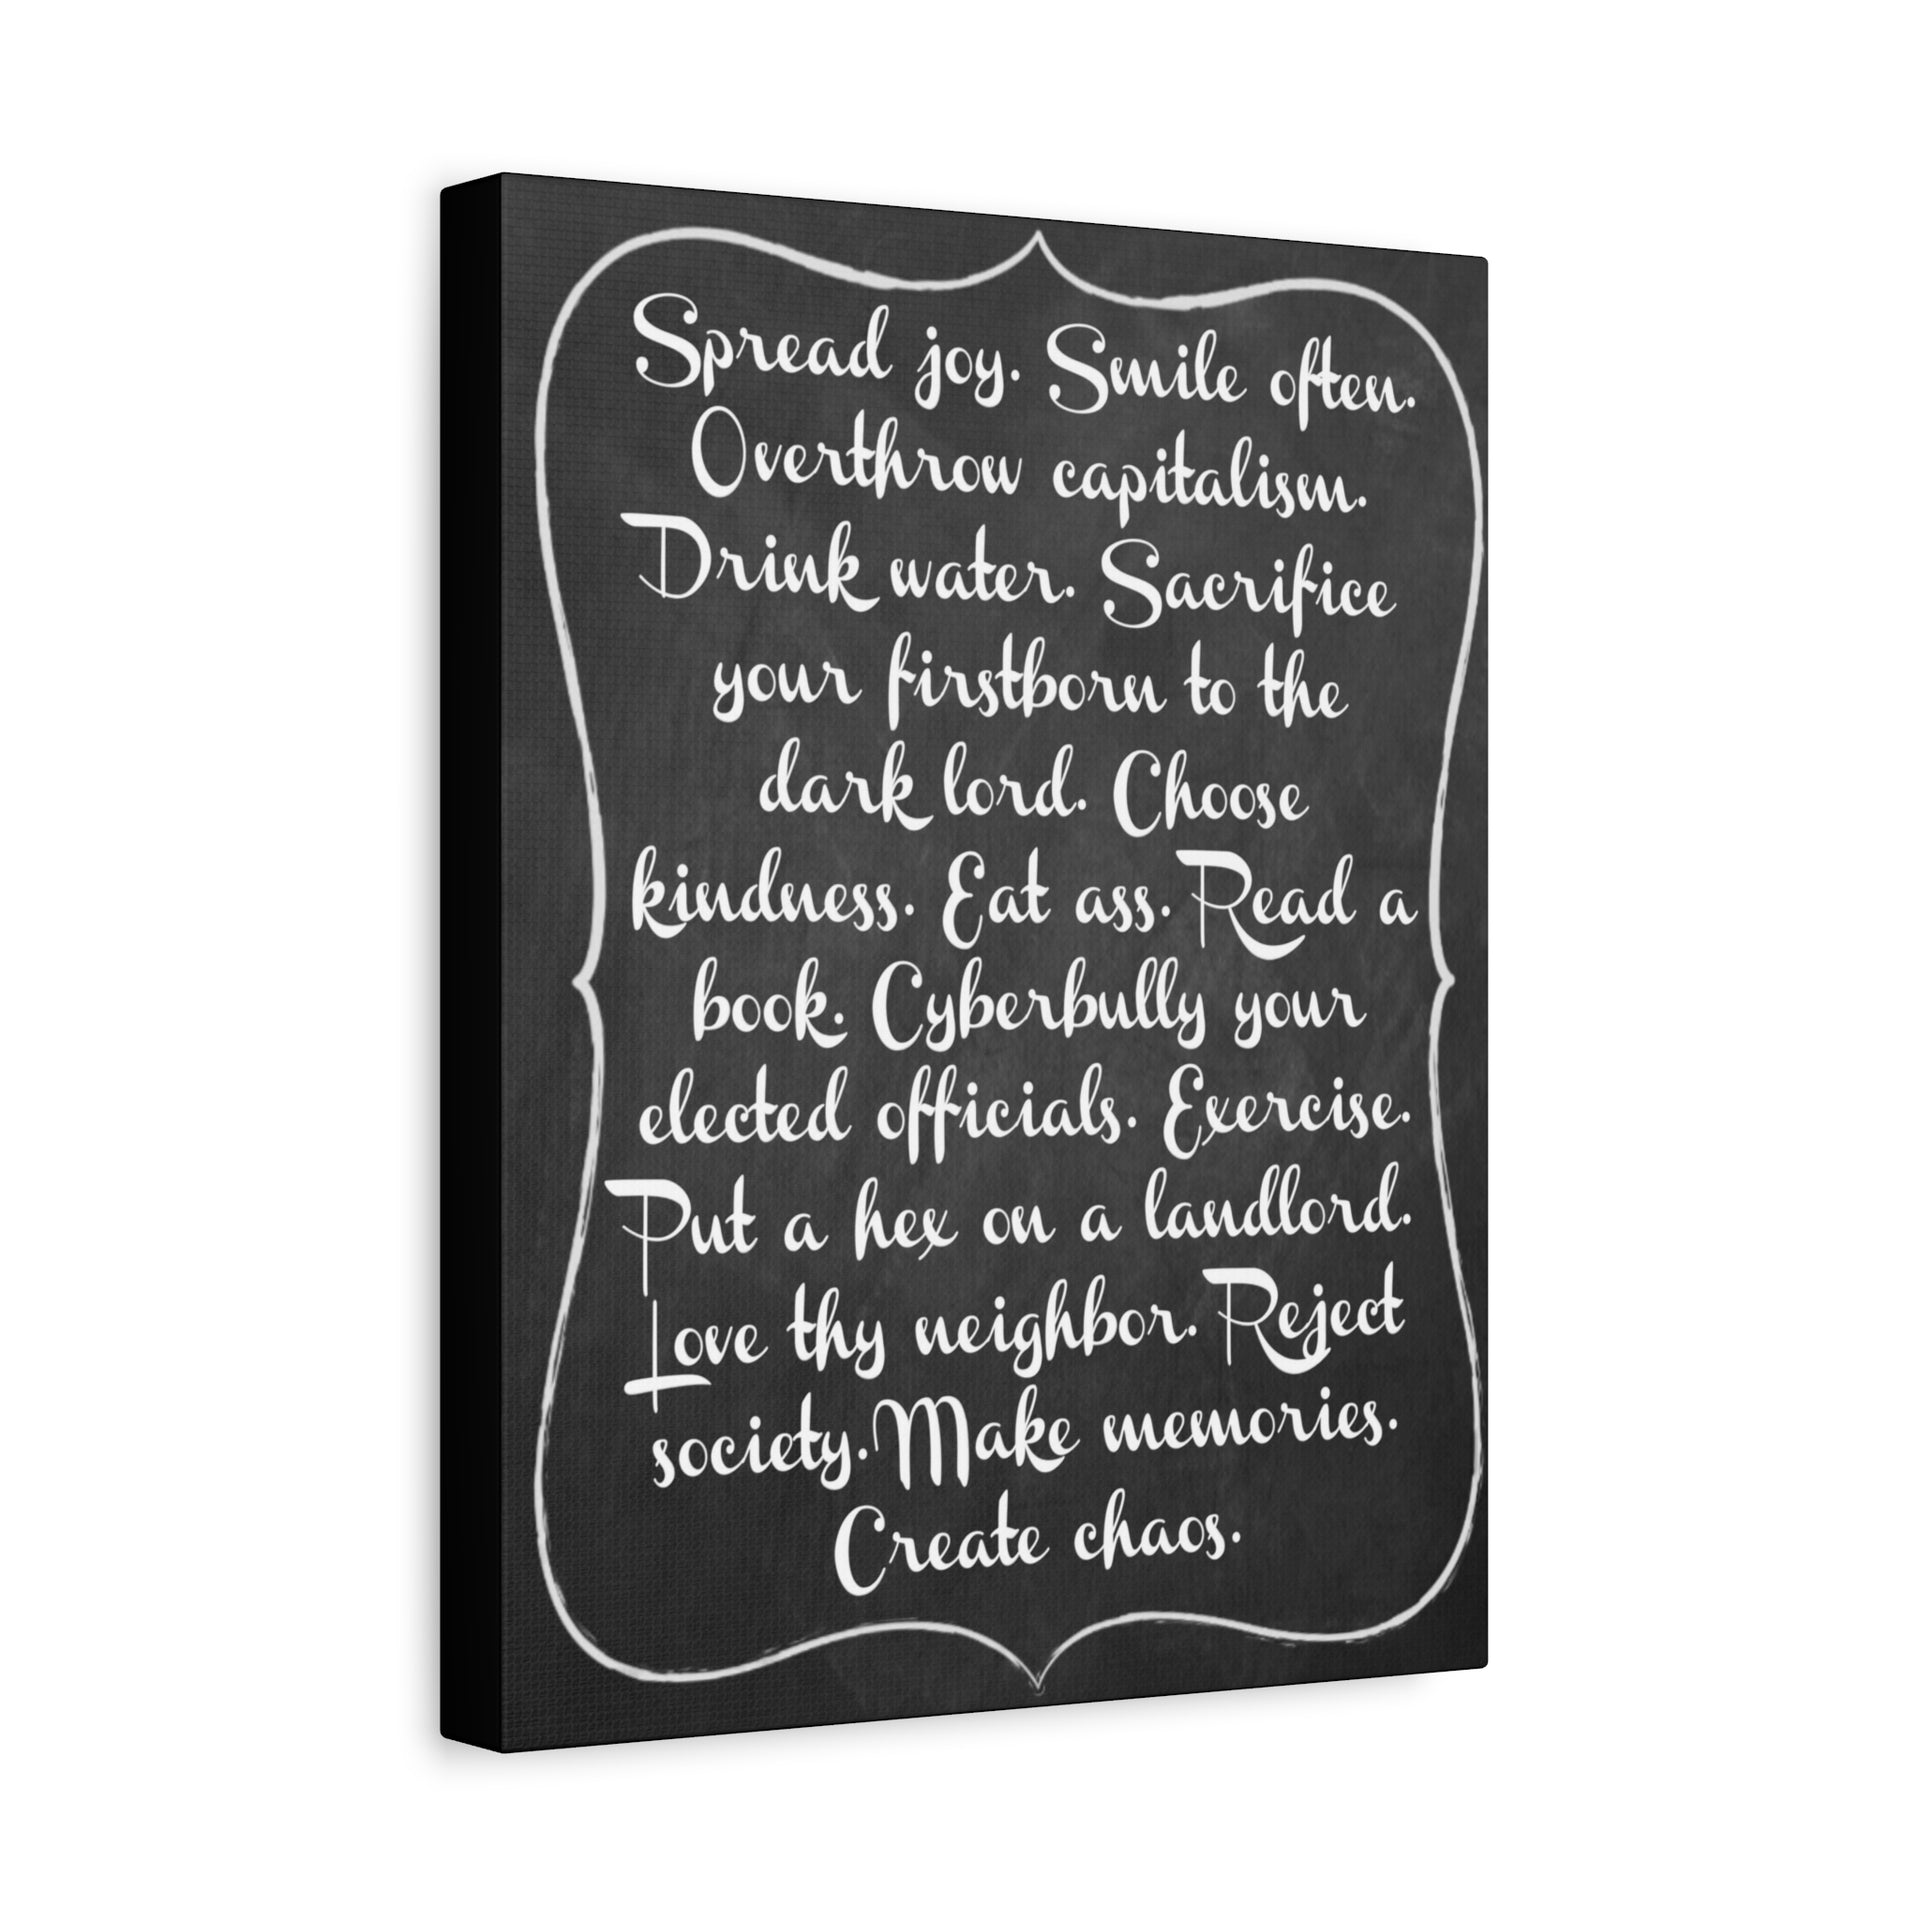 Spread joy. Smile often.
Overthrow capitalism.
Drink water. Sacrifice
your firstborn to the
dark lord. Choose
kindness. Eat ass. Read a
book. Cyberbully your
elected officials. Exercise.
Put a hex on a landlord.
Love thy neighbor. Reject
society. Make memories.
Create chaos.